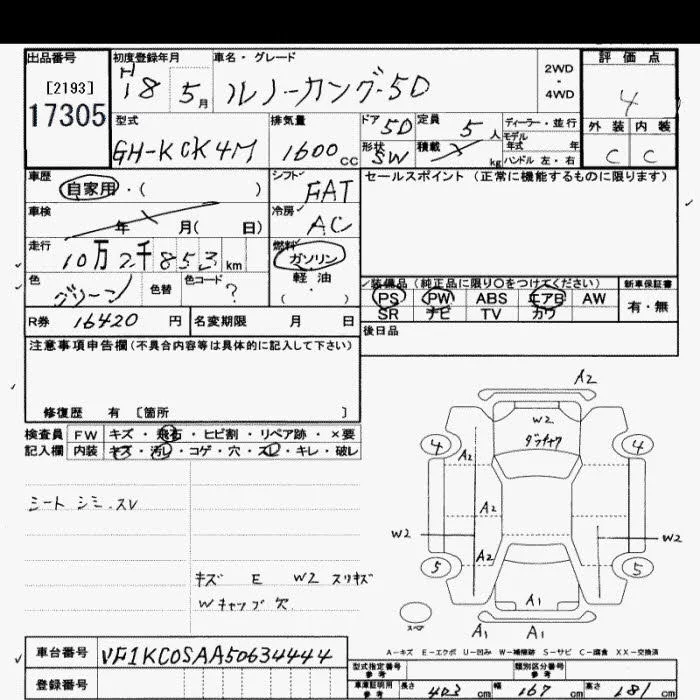 出品番号 初度登録年月 車名・グレード 評価点
[2193] H18 5月 ルノーカングー5D 2WD・4WD 4
17305
型式 排気量 ドア 5D 定員 5人 ディーラー・並行 外装 内装
モデル年式 年
GH-KCK4M 1600cc 形状 SW 積載 kg ハンドル 左・右 C C
車歴 シフト セールスポイント(正常に機能するものに限ります)
自家用・( ) FAT
車検 冷房
年 月( 日) AC
走行 燃料
10万2千853km ガソリン
色 色替 色コード 軽油
グリーン ? ( ・ )
装備品(純正品に限り○をつけてください) 新車保証書
PS PW ABS エアB AW 有・無
SR ナビ TV カワ
R券 16420円 名変期限 月 日 後日品
注意事項申告欄(不具合内容等は具体的に記入して下さい)
修復歴 有 〔箇所 〕
検査員 FW キズ・飛石・ヒビ割・リペア跡・×要
記入欄 内装 キズ・汚レ・コゲ・穴・スレ・キレ・破レ
シート シミ.スレ
キズ E W2 スリキズ
Wキャップ欠
A2
W2
4 4
A2
A2
W2 W2
A2
5 5
A1
スペア
A1 A1
A-キズ E-エクボ U-凹み W-補修跡 S-サビ C-腐食 XX-交換済
車台番号 VF1KC0SAA50634444
型式指定番号 参考 類別区分番号 参考
登録番号
車庫証明用 参考 長さ 403cm 幅 167cm 高さ 181cm